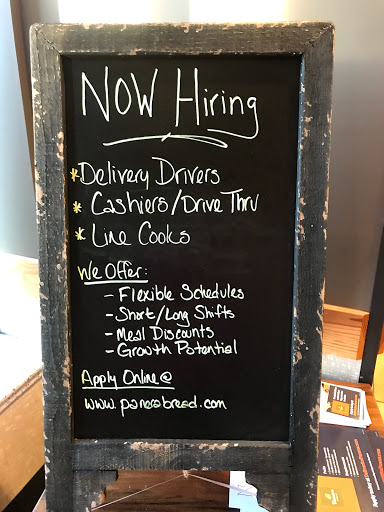 NOW Hiring
* Delivery Drivers
* Cashiers/Drive Thru
* Line Cooks
We Offer:
- Flexible Schedules
- Short/Long Shifts
- Meal Discounts
- Growth Potential
Apply Online @
www.panerabread.com